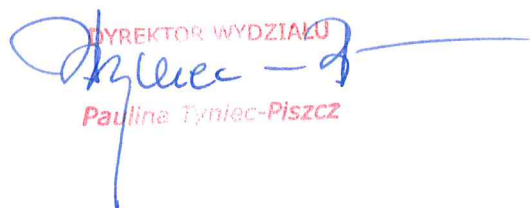 DYREKTOR WYDZIAŁU
Tyniec-P
Paulina Tyniec-Piszcz